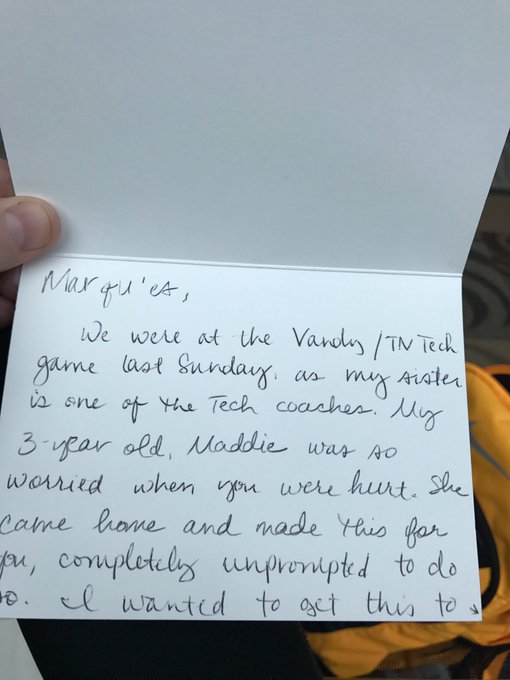 Marqu'es,
We were at the Vandy/TN Tech
game last Sunday, as my sister
is one of the Tech coaches. My
3-year old, Maddie was so
worried when you were hurt. She
came home and made this for
you, completely unprompted to do
so. I wanted to get this to